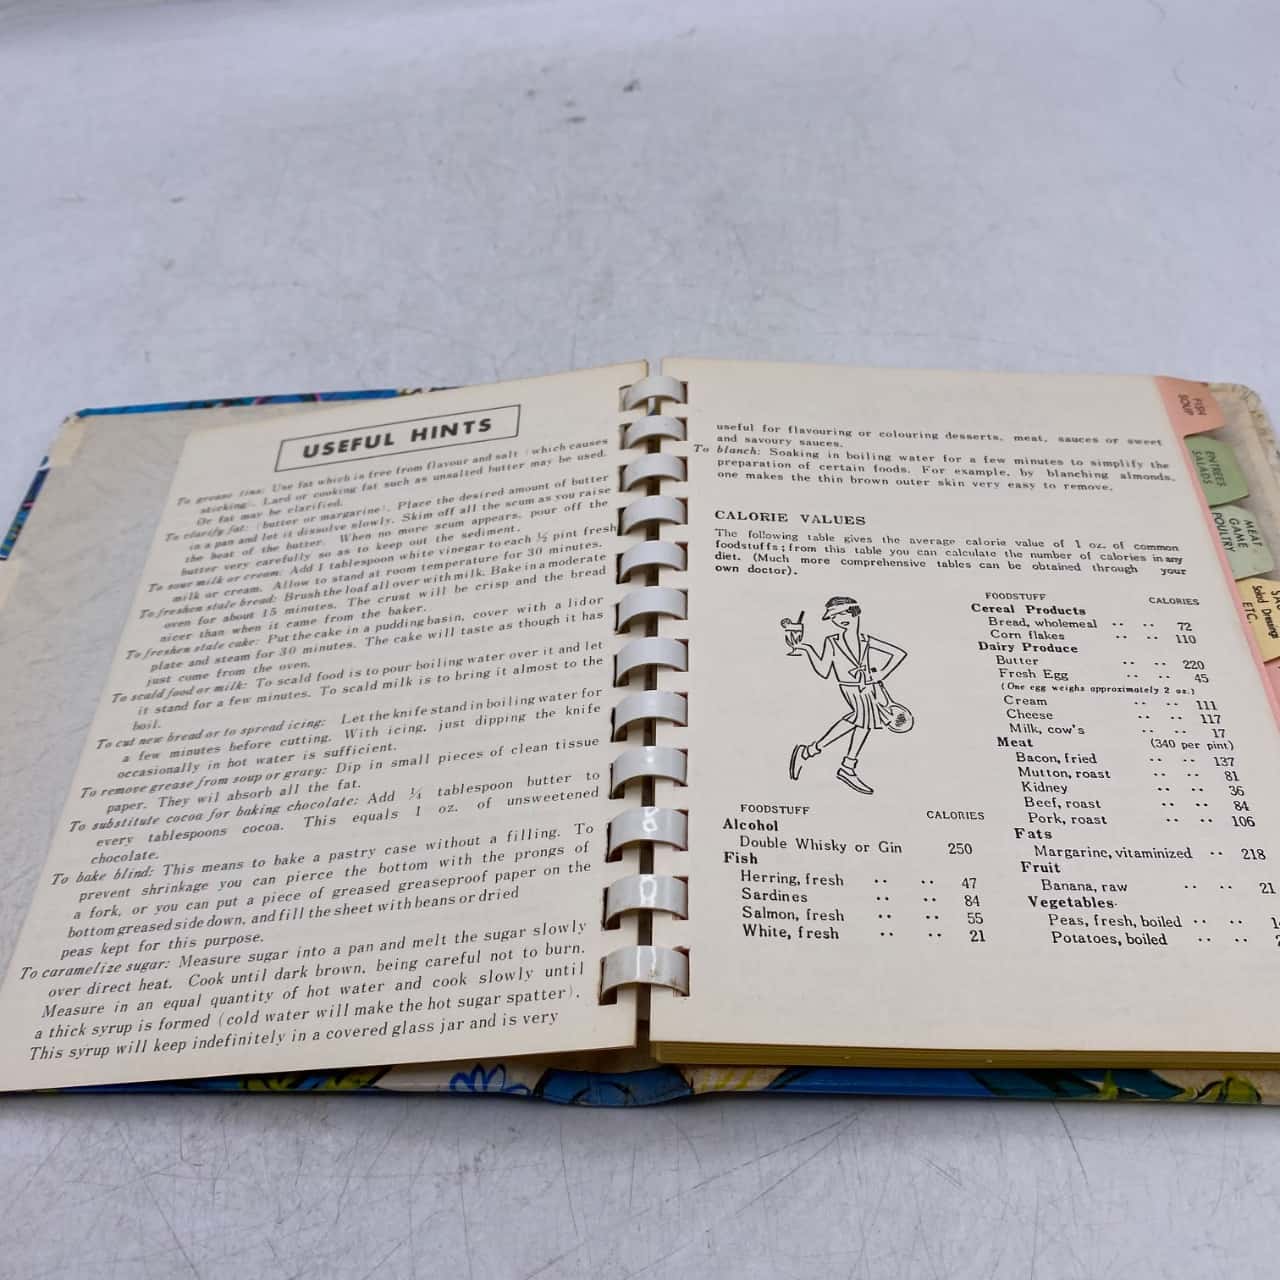 USEFUL HINTS
To grease tins: Use fat which is free from flavour and salt (which causes
sticking). Lard or cooking fat such as unsalted butter may be used.
Or fat may be clarified.
To clarify fat: (butter or margarine). Place the desired amount of butter
in a pan and let it dissolve slowly. Skim off all the scum as you raise
the heat of the butter. When no more scum appears, pour off the
butter very carefully so as to keep out the sediment.
To sour milk or cream: Add 1 tablespoon white vinegar to each ½ pint fresh
milk or cream. Allow to stand at room temperature for 30 minutes.
To freshen stale bread: Brush the loaf all over with milk. Bake in a moderate
oven for about 15 minutes. The crust will be crisp and the bread
nicer than when it came from the baker.
To freshen stale cake: Put the cake in a pudding basin, cover with a lid or
plate and steam for 30 minutes. The cake will taste as though it has
just come from the oven.
To scald food or milk: To scald food is to pour boiling water over it and let
it stand for a few minutes. To scald milk is to bring it almost to the
boil.
To cut new bread or to spread icing: Let the knife stand in boiling water for
a few minutes before cutting. With icing, just dipping the knife
occasionally in hot water is sufficient.
To remove grease from soup or gravy: Dip in small pieces of clean tissue
paper. They wil absorb all the fat.
To substitute cocoa for baking chocolate: Add ¼ tablespoon butter to
every tablespoons cocoa. This equals 1 oz. of unsweetened
chocolate.
To bake blind: This means to bake a pastry case without a filling. To
prevent shrinkage you can pierce the bottom with the prongs of
a fork, or you can put a piece of greased greaseproof paper on the
bottom greased side down, and fill the sheet with beans or dried
peas kept for this purpose.
To caramelize sugar: Measure sugar into a pan and melt the sugar slowly
over direct heat. Cook until dark brown, being careful not to burn.
Measure in an equal quantity of hot water and cook slowly until
a thick syrup is formed (cold water will make the hot sugar spatter).
This syrup will keep indefinitely in a covered glass jar and is very
useful for flavouring or colouring desserts, meat, sauces or sweet
and savoury sauces.
To blanch: Soaking in boiling water for a few minutes to simplify the
preparation of certain foods. For example, by blanching almonds,
one makes the thin brown outer skin very easy to remove.
CALORIE VALUES
The following table gives the average calorie value of 1 oz. of common
foodstuffs; from this table you can calculate the number of calories in any
diet. (Much more comprehensive tables can be obtained through your
own doctor).
FOODSTUFF CALORIES
Alcohol
Double Whisky or Gin 250
Fish
Herring, fresh .. .. 47
Sardines .. .. 84
Salmon, fresh .. .. 55
White, fresh .. .. 21
FOODSTUFF CALORIES
Cereal Products
Bread, wholemeal .. .. 72
Corn flakes .. .. 110
Dairy Produce
Butter .. .. 220
Fresh Egg .. .. 45
(One egg weighs approximately 2 oz.)
Cream .. .. 111
Cheese .. .. 117
Milk, cow's .. .. 17
(340 per pint)
Meat
Bacon, fried .. .. 137
Mutton, roast .. .. 81
Kidney .. .. 36
Beef, roast .. .. 84
Pork, roast .. .. 106
Fats
Margarine, vitaminized .. 218
Fruit
Banana, raw .. .. 21
Vegetables
Peas, fresh, boiled .. ..
Potatoes, boiled .. ..
FISH
SOUP
ENTREES
SALADS
MEAT
GAME
POULTRY
Salad Dressings
ETC.